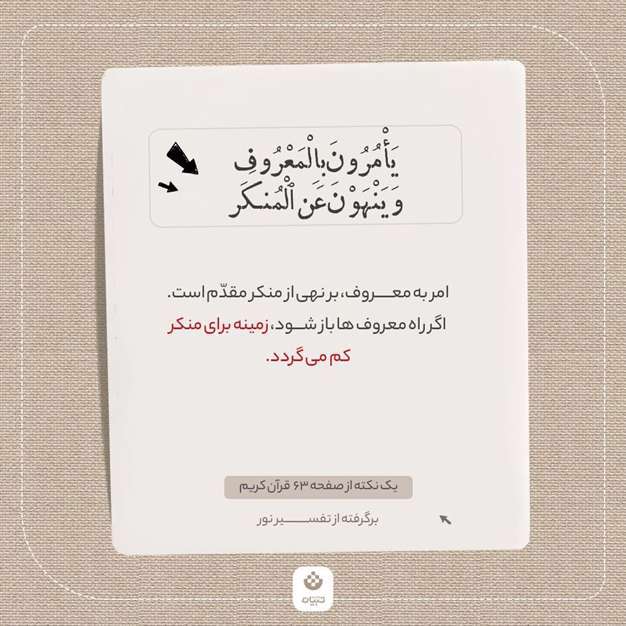 يَأْمُرُونَ بِالْمَعْرُوفِ
وَ يَنْهَوْنَ عَنِ ٱلْمُنكَرِ
امر به معـــروف، بر نهی از منکر مقدّم است.
اگر راه معروف ها باز شـــود، زمینه برای منکر
کم می گردد.
یک نکته از صفحه ۶۳ قرآن کریم
برگرفته از تفســـــــیر نور
تبیان